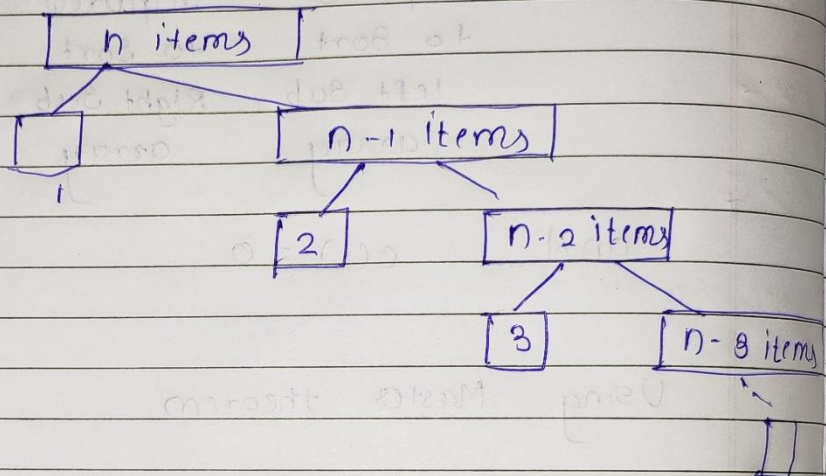 n items
n-1 items
1
2
n-2 items
3
n-3 items